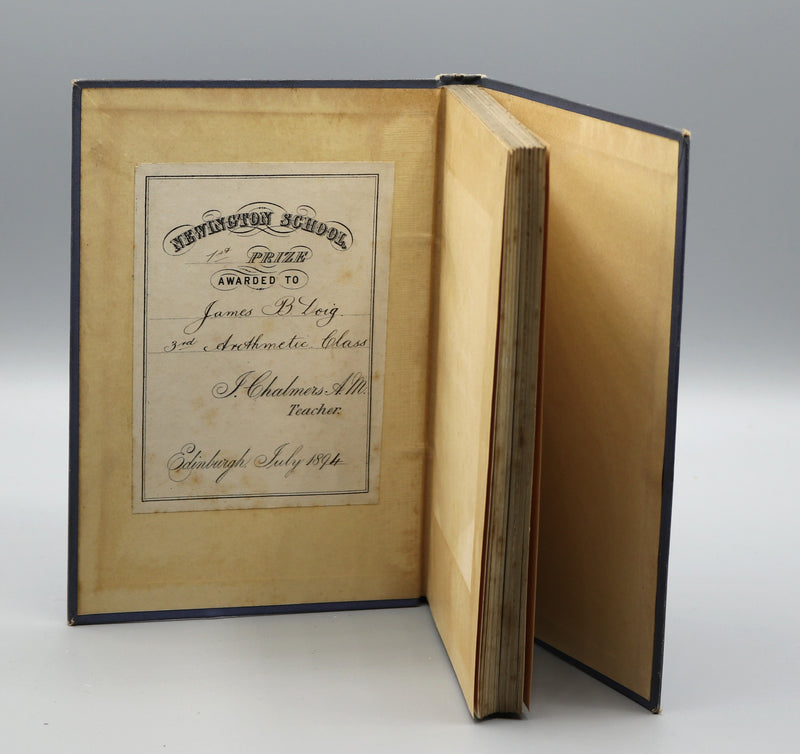 NEWINGTON SCHOOL.
1st PRIZE
AWARDED TO
James B Doig.
3rd Arithmetic Class
J. Chalmers. A.M.
Teacher.
Edinburgh, July 1894